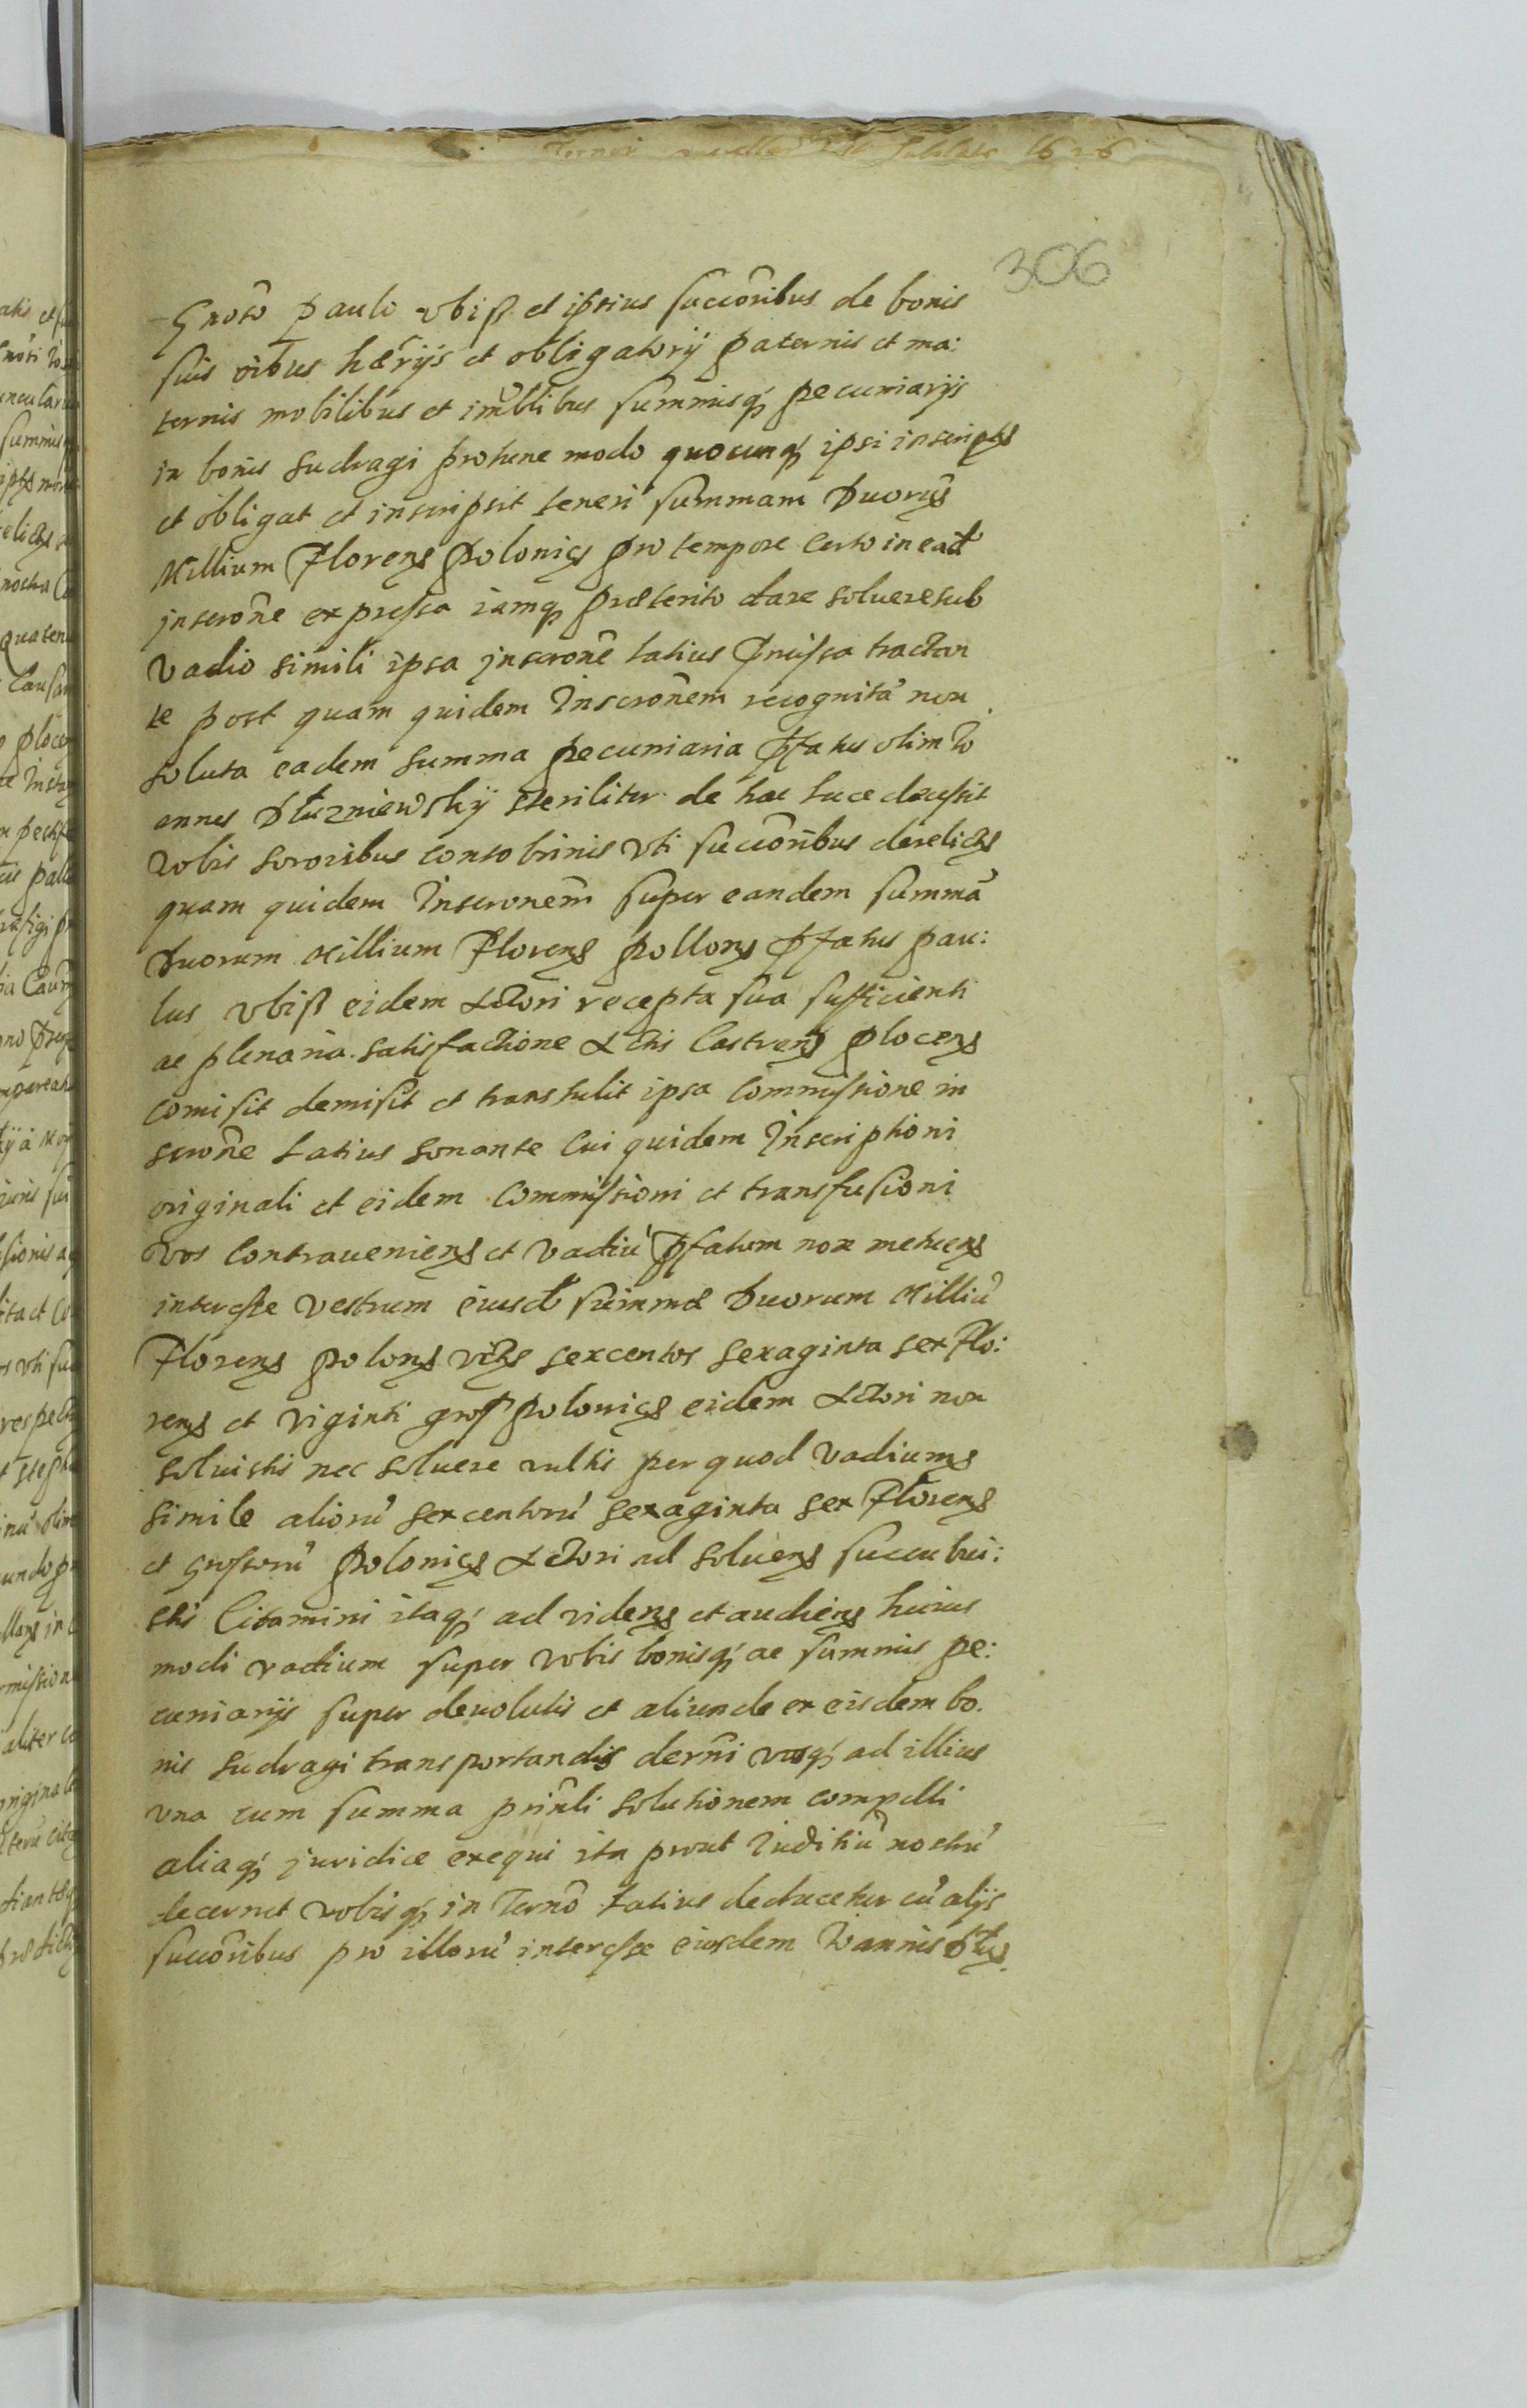 1626
306
Gnoso Paulo Vbisz et ipsius succoribus de bonis
suis oibus haeriis et obligatorij paternis et ma:
ternis mobilibus et imoblibus summisq pecuniarijs
in bonis Sudragi protunc modo quocunq ipsi inscriptis
et obligat et inscripsit teneri summam Duorum
Millium Floren Polonic pro tempore certo in ead
inscrone expressa iamq praeterito dare soluere sub
vadio simili ipsa inscrone latius praemissa tractan
te post quam quidem Inscronem recognita non
soluta eadem summa pecuniaria pfatus olim Io
annes Dłuzniewskÿ steriliter de hac luce decessit
vobis sororibus consobrinis vti succoribus derelictis
quam quidem Inscronem super eandem summa
Duorum Millium Floren Pollon pfatus Pau:
lus Vbisz eidem Actori recepta sua sufficienti
ac plenaria satisfactione Actis Castren Plocen
comisit demisit et transtulit ipsa commissione in
scrone latius sonante Cui quidem Inscriptioni
originali et eidem Commissioni et transfusioni
vos contravenien et vadiu pfatum non metuen
interesse vestrum eiusd summae Duorum Milliu
Floren Polon videlicet sexcentos sexaginta sex Flo:
ren et viginti gross Polonic eidem Actori non
soluistis nec soluere vultis per quod vadium
simile alioru sexcentoru sexaginta sex Floren
et grossoru Polonic Actori ad soluen succubui:
stis Citamini itaq ad viden et audien huius
modi vadium super vobis bonisq ac summis pe:
cuniarijs super devolutis et aliunde ex eisdem bo.
nis Sudragi transportandis derni vosq ad illius
vna cum summa prinli solutionem compelli
aliaq juridice exequi ita prout Iuditiu nostru
decernet vobisq in Terno latius deducetur cu alijs
succoribus pro illoru interesse eiusdem Ioannis Dłus